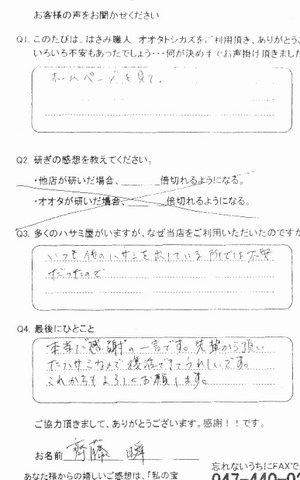 お客様の声をお聞かせください
Q1. このたびは、はさみ職人 オオタトシカズをご利用頂き、ありがとうご
いろいろ不安もあったでしょう・・・何が決め手でお声掛け頂きました
ホームページを見て。
Q2. 研ぎの感想を教えてください。
・他店が研いだ場合、______倍切れるようになる。
・オオタが研いだ場合、______倍切れるようになる。
Q3. 多くのハサミ屋がいますが、なぜ当店をご利用いただいたのですか
いつも他のハサミを出している所では不安
だったので
Q4. 最後にひとこと
本当に感謝の一言です。先輩から頂い
たハサミなので復活できてうれしいです。
これからもよろしくお願します。
ご協力頂きまして、ありがとうございます。感謝！！です。
お名前 齊藤 瞬
忘れないうちにFAXで
あなた様からの嬉しいご感想は、「私の宝
047-440-0